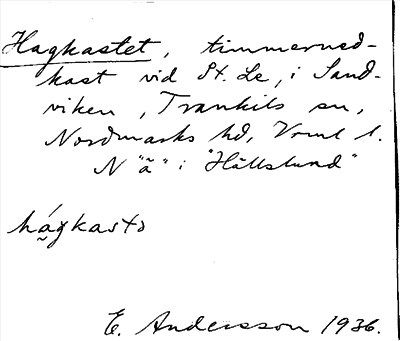 Hagkastet, timmerned-
kast vid St. Le, i Sand-
viken, Trankils sn,
Nordmarks hd, Vrml l.
N "ä" i "Hällslund"
hágkastə
E. Andersson 1936.